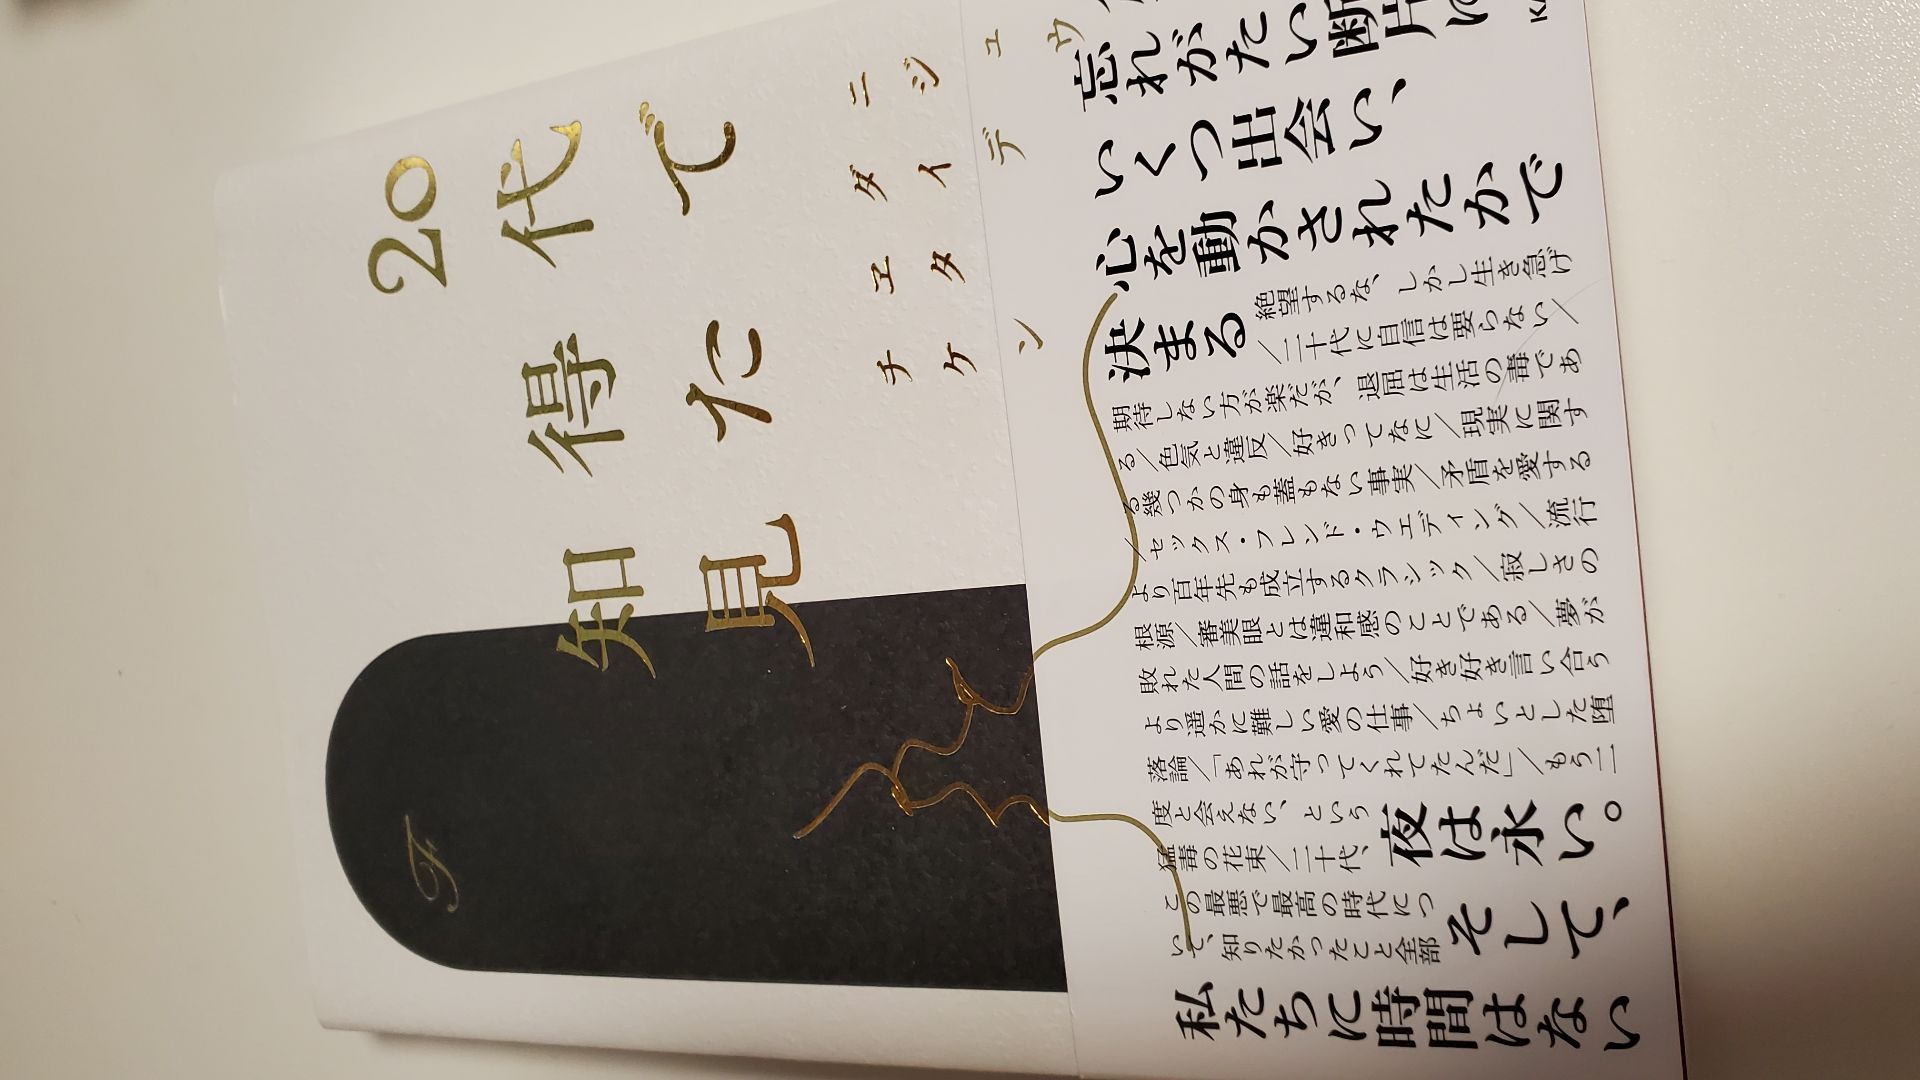 20代で
得た
知見
ニジュウ
ダイデ
ヱタ
チケン
F
忘れがたい断片に
いくつ出会い、
心を動かされたかで
決まる
絶望するな、しかし生き急げ
／二十代に自信は要らない／
期待しない方が楽だが、退屈は生活の毒であ
る／色気と違反／好きってなに／現実に関す
る幾つかの身も蓋もない事実／矛盾を愛する
／セックス・フレンド・ウエディング／流行
より百年先も成立するクラシック／寂しさの
根源／審美眼とは違和感のことである／夢が
敗れた人間の話をしよう／好き好き言い合う
より遥かに難しい愛の仕事／ちょいとした堕
落論／「あれが守ってくれてたんだ」／もう二
度と会えない、という
猛毒の花束／二十代、
この最悪で最高の時代につ
いて、知りたかったこと全部
夜は永い。
そして、
私たちに時間はない